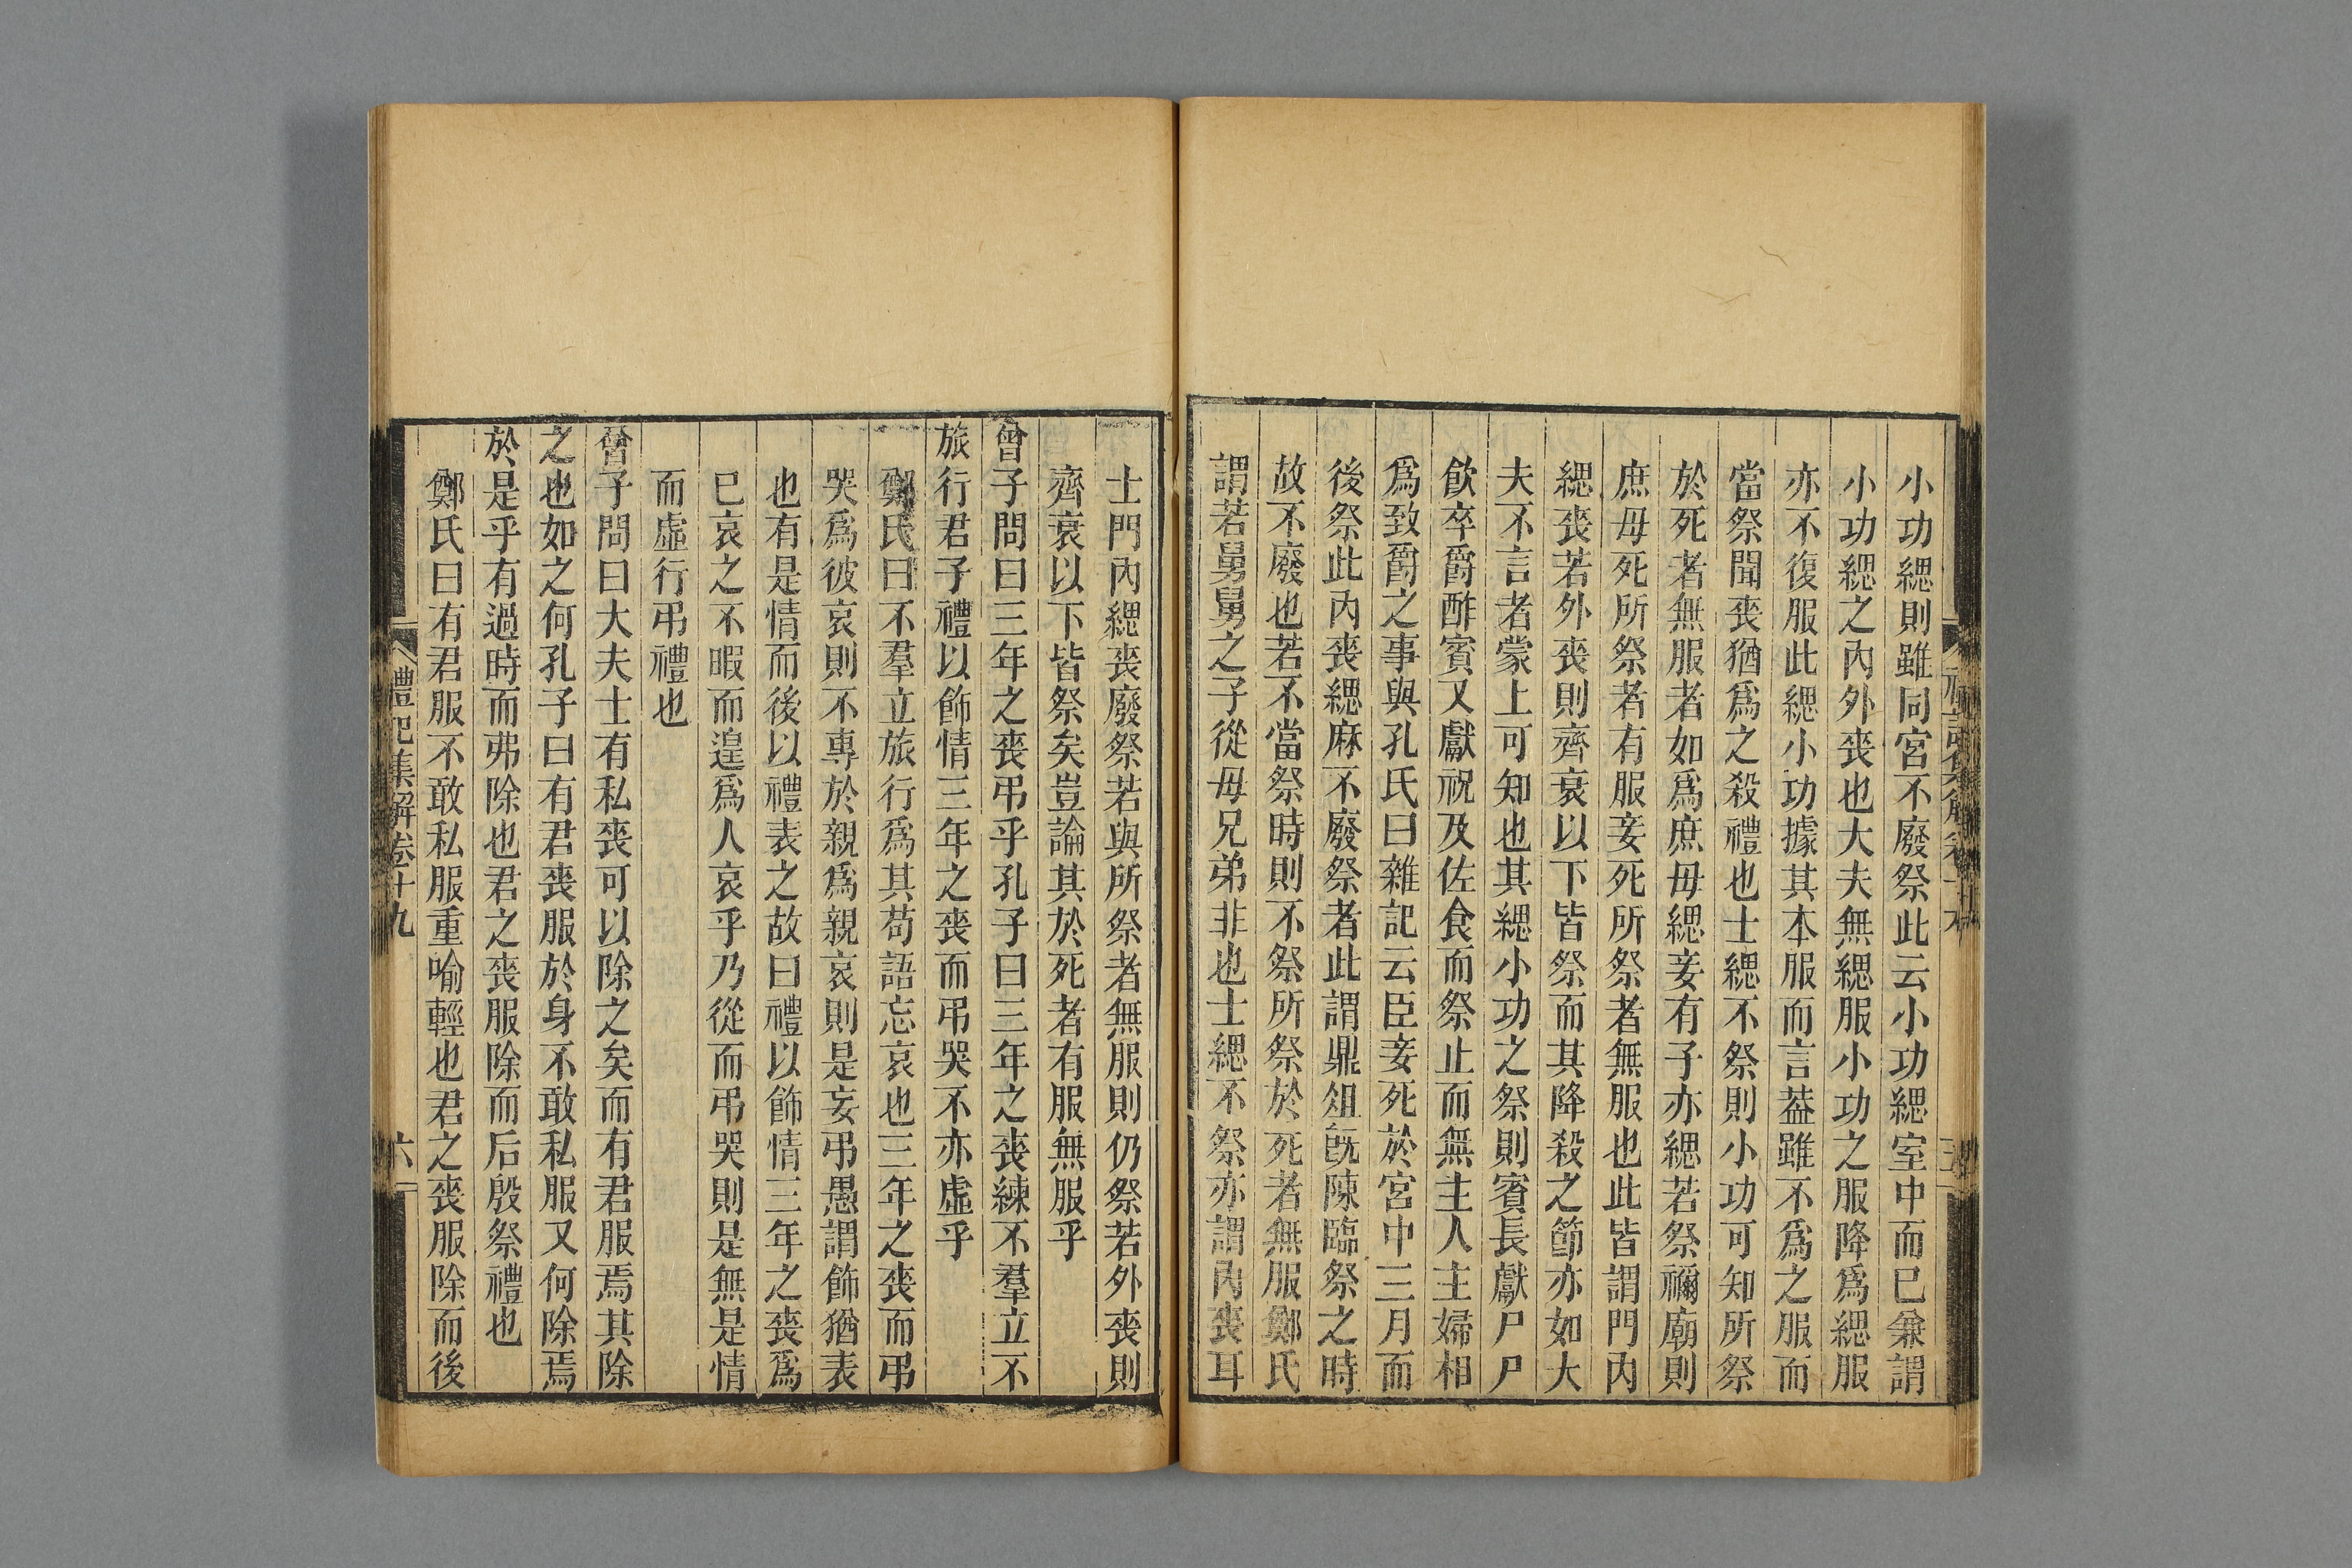 小功緦則雖同宮不廢祭此云小功緦室中而已兼謂
小功緦之內外喪也大夫無緦服小功之服降爲緦服
亦不復服此緦小功據其本服而言葢雖不爲之服而
當祭聞喪猶爲之殺禮也士緦不祭則小功可知所祭
於死者無服者如爲庶母緦妾有子亦緦若祭禰廟則
庶母死所祭者有服妾死所祭者無服也此皆謂門內
緦喪若外喪則齊衰以下皆祭而其降殺之節亦如大
夫不言者蒙上可知也其緦小功之祭則賓長獻尸尸
飲卒爵酢賓又獻祝及佐食而祭止而無主人主婦相
爲致爵之事與孔氏曰雜記云臣妾死於宮中三月而
後祭此內喪緦麻不廢祭者此謂鼎俎旣陳臨祭之時
故不廢也若不當祭時則不祭所祭於死者無服鄭氏
謂若舅舅之子從母兄弟非也士緦不祭亦謂內喪耳
士門內緦喪廢祭若與所祭者無服則仍祭若外喪則
齊衰以下皆祭矣豈論其於死者有服無服乎
曾子問曰三年之喪弔乎孔子曰三年之喪練不羣立不
旅行君子禮以飾情三年之喪而弔哭不亦虛乎
鄭氏曰不羣立旅行爲其苟語忘哀也三年之喪而弔
哭爲彼哀則不專於親爲親哀則是妄弔愚謂飾猶表
也有是情而後以禮表之故曰禮以飾情三年之喪爲
已哀之不暇而遑爲人哀乎乃從而弔哭則是無是情
而虛行弔禮也
曾子問曰大夫士有私喪可以除之矣而有君服焉其除
之也如之何孔子曰有君喪服於身不敢私服又何除焉
於是乎有過時而弗除也君之喪服除而后殷祭禮也
鄭氏曰有君服不敢私服重喻輕也君之喪服除而後
禮記集解卷十九
六